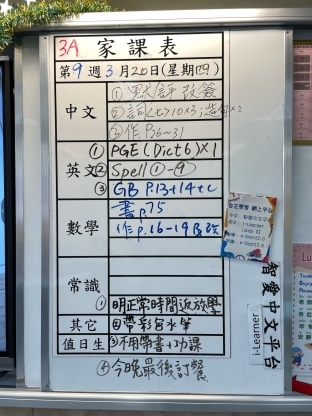 3A 家課表
第9週3月20日(星期四)
中文
①默評改簽
②詞<七>10×3,造句×2
③作P.36~31
英文
①PGE(Dict6)×1
②Spell①-④
③GB P.13+14+c
數學
書p.75
作p.16-19及改
常識
①明正常時間返放學
其它
②帶彩色水筆
值日生
③不用帶書+功課
④今晚最後訂餐
自主學習 網上平台
i-Learner
智愛中文平台